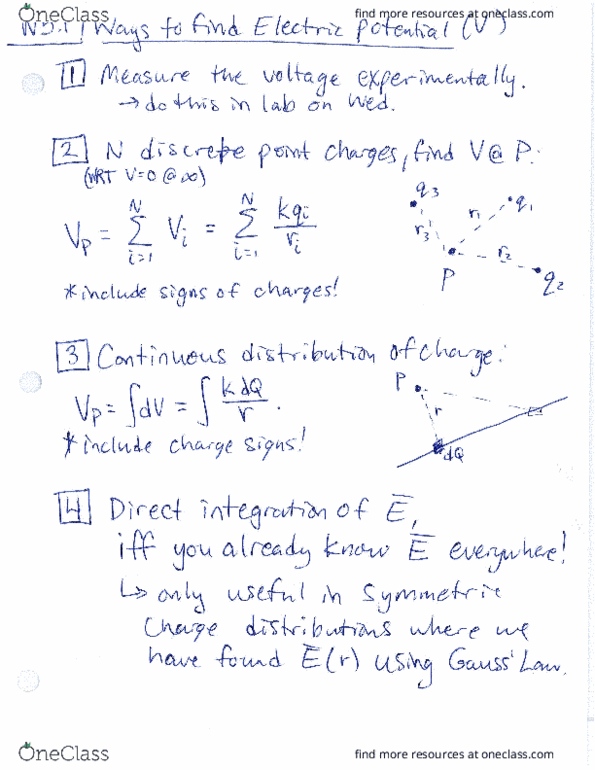 OneClass
find more resources at oneclass.com
Ways to find Electric Potential (V)
1 Measure the voltage experimentally.
→ do this in lab on Wed.
2 N discrete point charges, find V@ P:
(WRT V=0 @ ∞)
Vp = Σ_{i=1}^{N} Vi = Σ_{i=1}^{N} kqi/ri
*include signs of charges!
q3
q1
r1
r3
r2
P
q2
3 Continuous distribution of charge:
Vp = ∫dV = ∫ k dQ/r .
*include charge signs!
P
r
dQ
4 Direct integration of E̅,
iff you already know E̅ everywhere!
↳ only useful in symmetric
charge distributions where we
have found E̅(r) using Gauss' Law.
OneClass
find more resources at oneclass.com